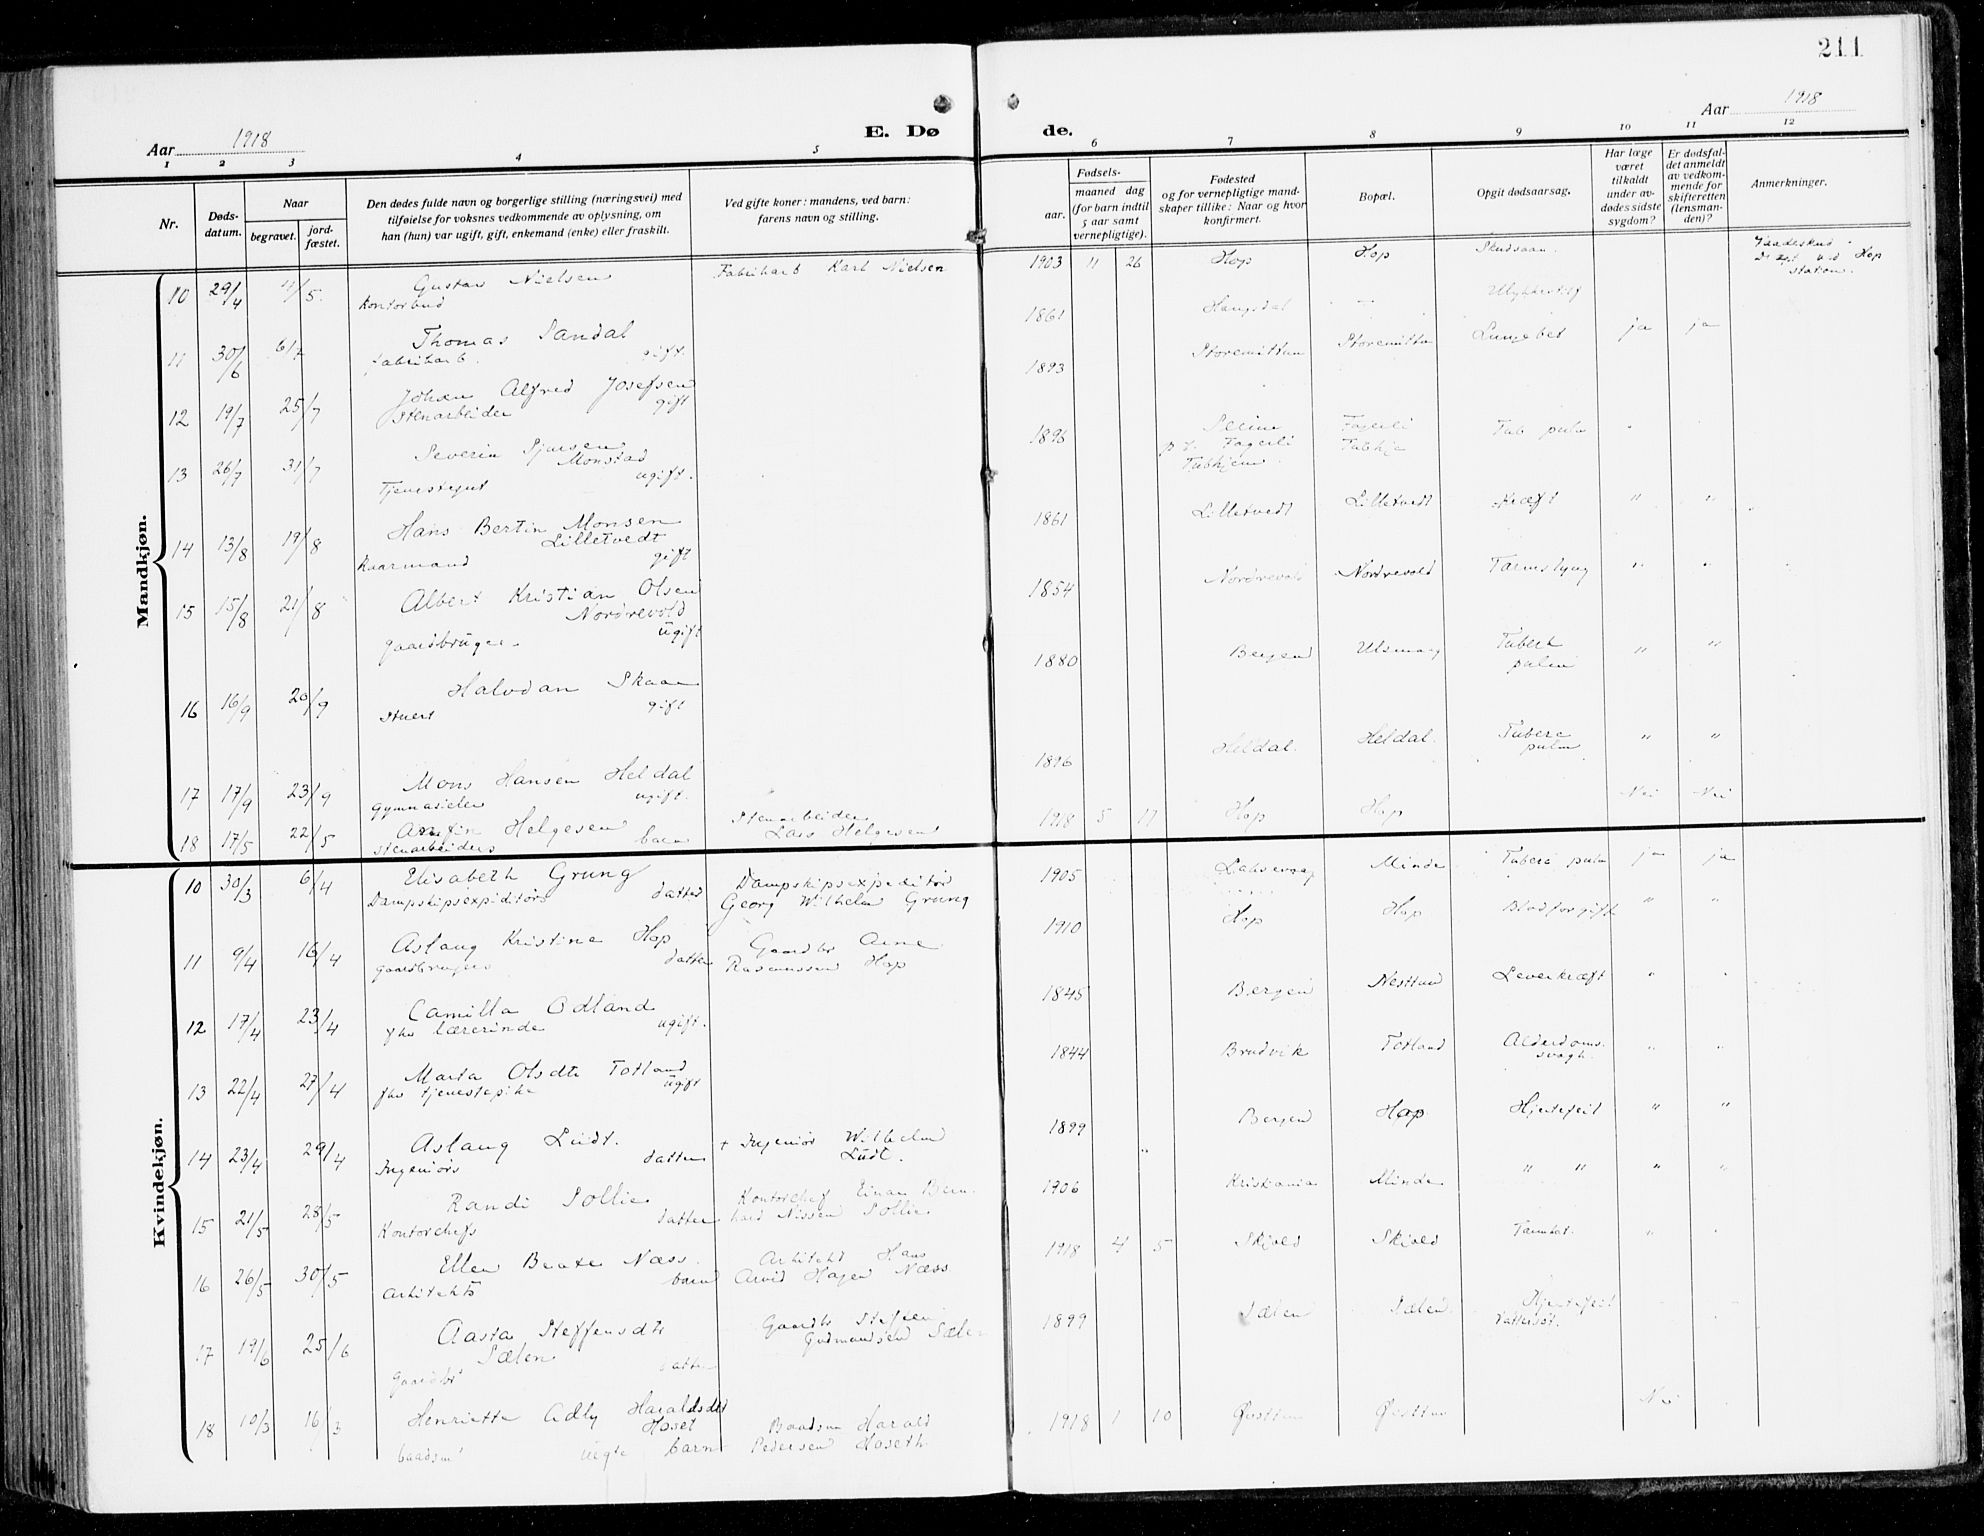 211
Aar 1918
E. Dø
de.
Aar 1918
1 2 3 4 5 6 7 8 9 10 11 12
Nr.
Døds-
datum.
Naar
begravet.
jord-
fæstet.
Den dødes fulde navn og borgerlige stilling (næringsvei) med
tilføielse for voksnes vedkommende av oplysning, om
han (hun) var ugift, gift, enkemand (enke) eller fraskilt.
Ved gifte koner: mandens, ved barn:
farens navn og stilling.
Fødsels-
aar.
maaned dag
(for barn indtil
5 aar samt
vernepligtige).
Fødested
og for vernepligtige mand-
skaper tillike: Naar og hvor
konfirmert.
Bopæl.
Opgit dødsaarsag.
Har læge
været
tilkaldt
under av-
dødes sidste
sygdom?
Er dødsfal-
det anmeldt
av vedkom-
mende for
skifteretten
(lensman-
den)?
Anmerkninger.
Mandkjøn.
10 29/4 11/5 Gustav Nielsen Fabrikarb Karl Nielsen 1903 11 26 Hop Hop Skudsaar
Kontorbud
Vaadeskud
ved Hop
station.
11 30/6 6/7 Thomas Sandal 1861 Haugsdal Ulykkestilf
fabrikarb. gift.
12 19/7 25/7 Johan Alfred Josefsen 1893 Storemittun Storemittun Lungebet ja ja
Stenarbeider gift
13 26/7 31/7 Severin Sjursen 1896 Fagerli Tub pulm
Monstad
Tjenestegut ugift.
p. t. Fagerli
Tubhjem
14 13/8 19/8 Hans Bertin Monsen 1861 Lilletvedt Lilletvedt Kræft " "
Lilletvedt
Kaarmand gift
15 15/8 21/8 Albert Kristian Olsen 1854 Nordrevold Nordrevold Tarmslyng " "
Nordrevold
gaardbruger ugift
16 16/9 20/9 Halvdan Skaar 1880 Bergen Ulsmaag Tuberk " "
pulm
Stuert gift
17 17/9 23/9 Mons Hansen Heldal 1896 Heldal. Heldal. Tuberc " "
pulm
gymnasielev ugift.
18 17/5 22/5 Arnfin Helgesen Stenarbeider 1918 5 17 Hop Hop Nei Nei
stenarbeiders barn Lars Helgesen
Kvindekjøn.
10 30/3 6/4 Elisabeth Grung Dampskipsexpeditør 1905 Laksevaag Minde Tuberc pulm ja ja
Dampskipsexpeditørs datter Georg Wilhelm Grung
11 9/4 16/4 Aslaug Kristine Hop Gaardbr Arne 1910 Hop Hop Blodforgift " "
gaardbrugers datter Rasmussen Hop
12 17/4 23/4 Camilla Odland 1845 Bergen Nesttun Leverkræft " "
fhv lærerinde ugift.
13 22/4 27/4 Marta Olsdtr Totland 1844 Brudvik Totland Alderdoms- " "
svagh.
fhv tjenestepike ugift
14 23/4 29/4 Aslaug Lüdt. + Ingeniør Wilhelm 1899 Bergen Hop Hjertefeil " "
Ingeniørs datter Lüdt.
15 21/5 28/5 Randi Sollie Kontorchef Einar Bern- 1906 Kristiania Minde " " " "
Kontorchefs datter hard Nissen Sollie.
16 26/5 30/5 Ellen Beate Næss. Arkitekt Hans 1918 4 5 Skjold Skjold Tarmkat. "
Arkitekts barn Arvid Hagen Næss
17 19/6 25/6 Aasta Steffensdtr Gaardbr Steffen 1899 Sælen Sælen Hjertefeil
Sælen Gudmundsen Sælen
Gaardbr datter
18 10/3 16/3 Henriette Adly Haraldsdtr 1918 1 10 Øvsttun Øvsttun Nei
Hoset Baadsm Harald
baadsm uegte barn Pedersen Hoseth